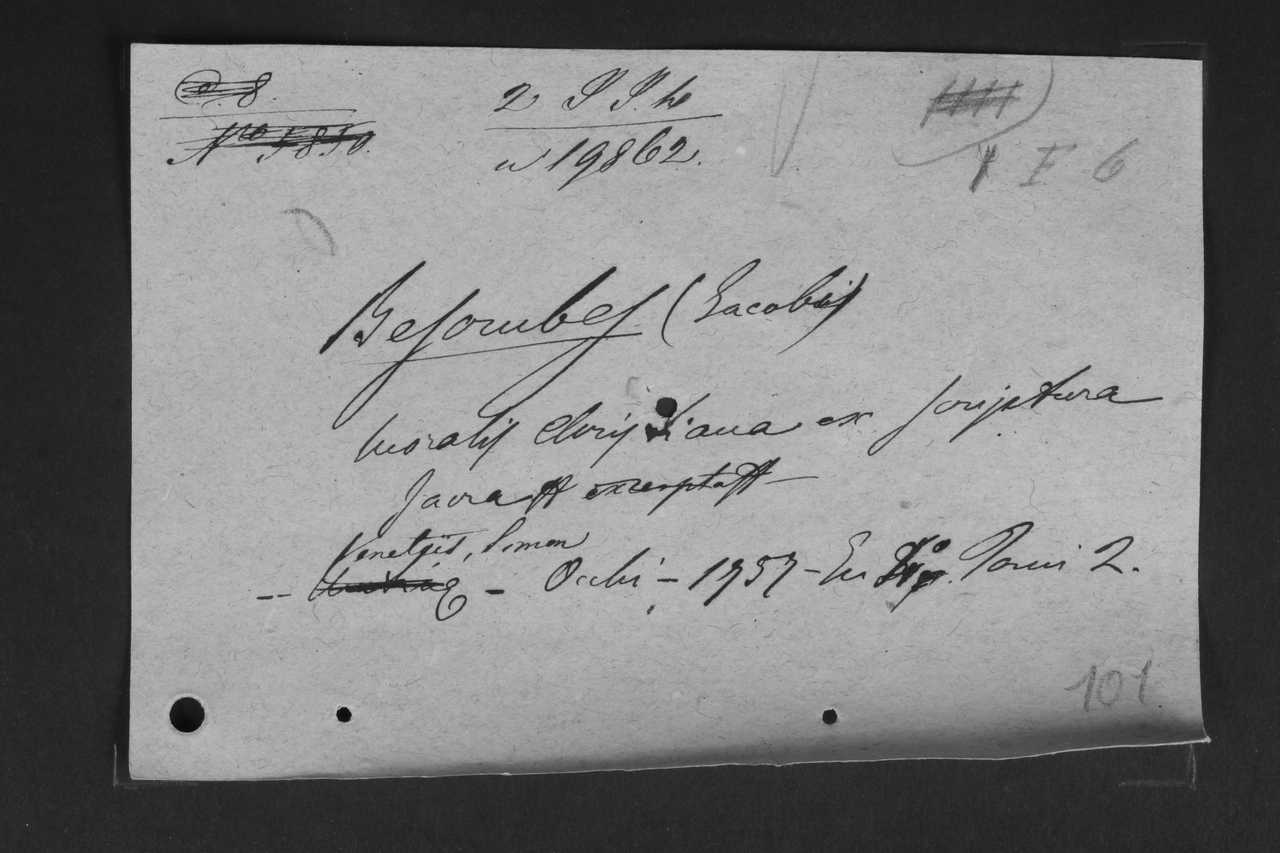 2 J J. he
N 19862.
I F 6
Besombes (Jacobus)
Moralis Christiana ex Scriptura
Sacra excerpta
Venetiis, Simon
-- Occhi - 1757 - In Tomi 2.
101